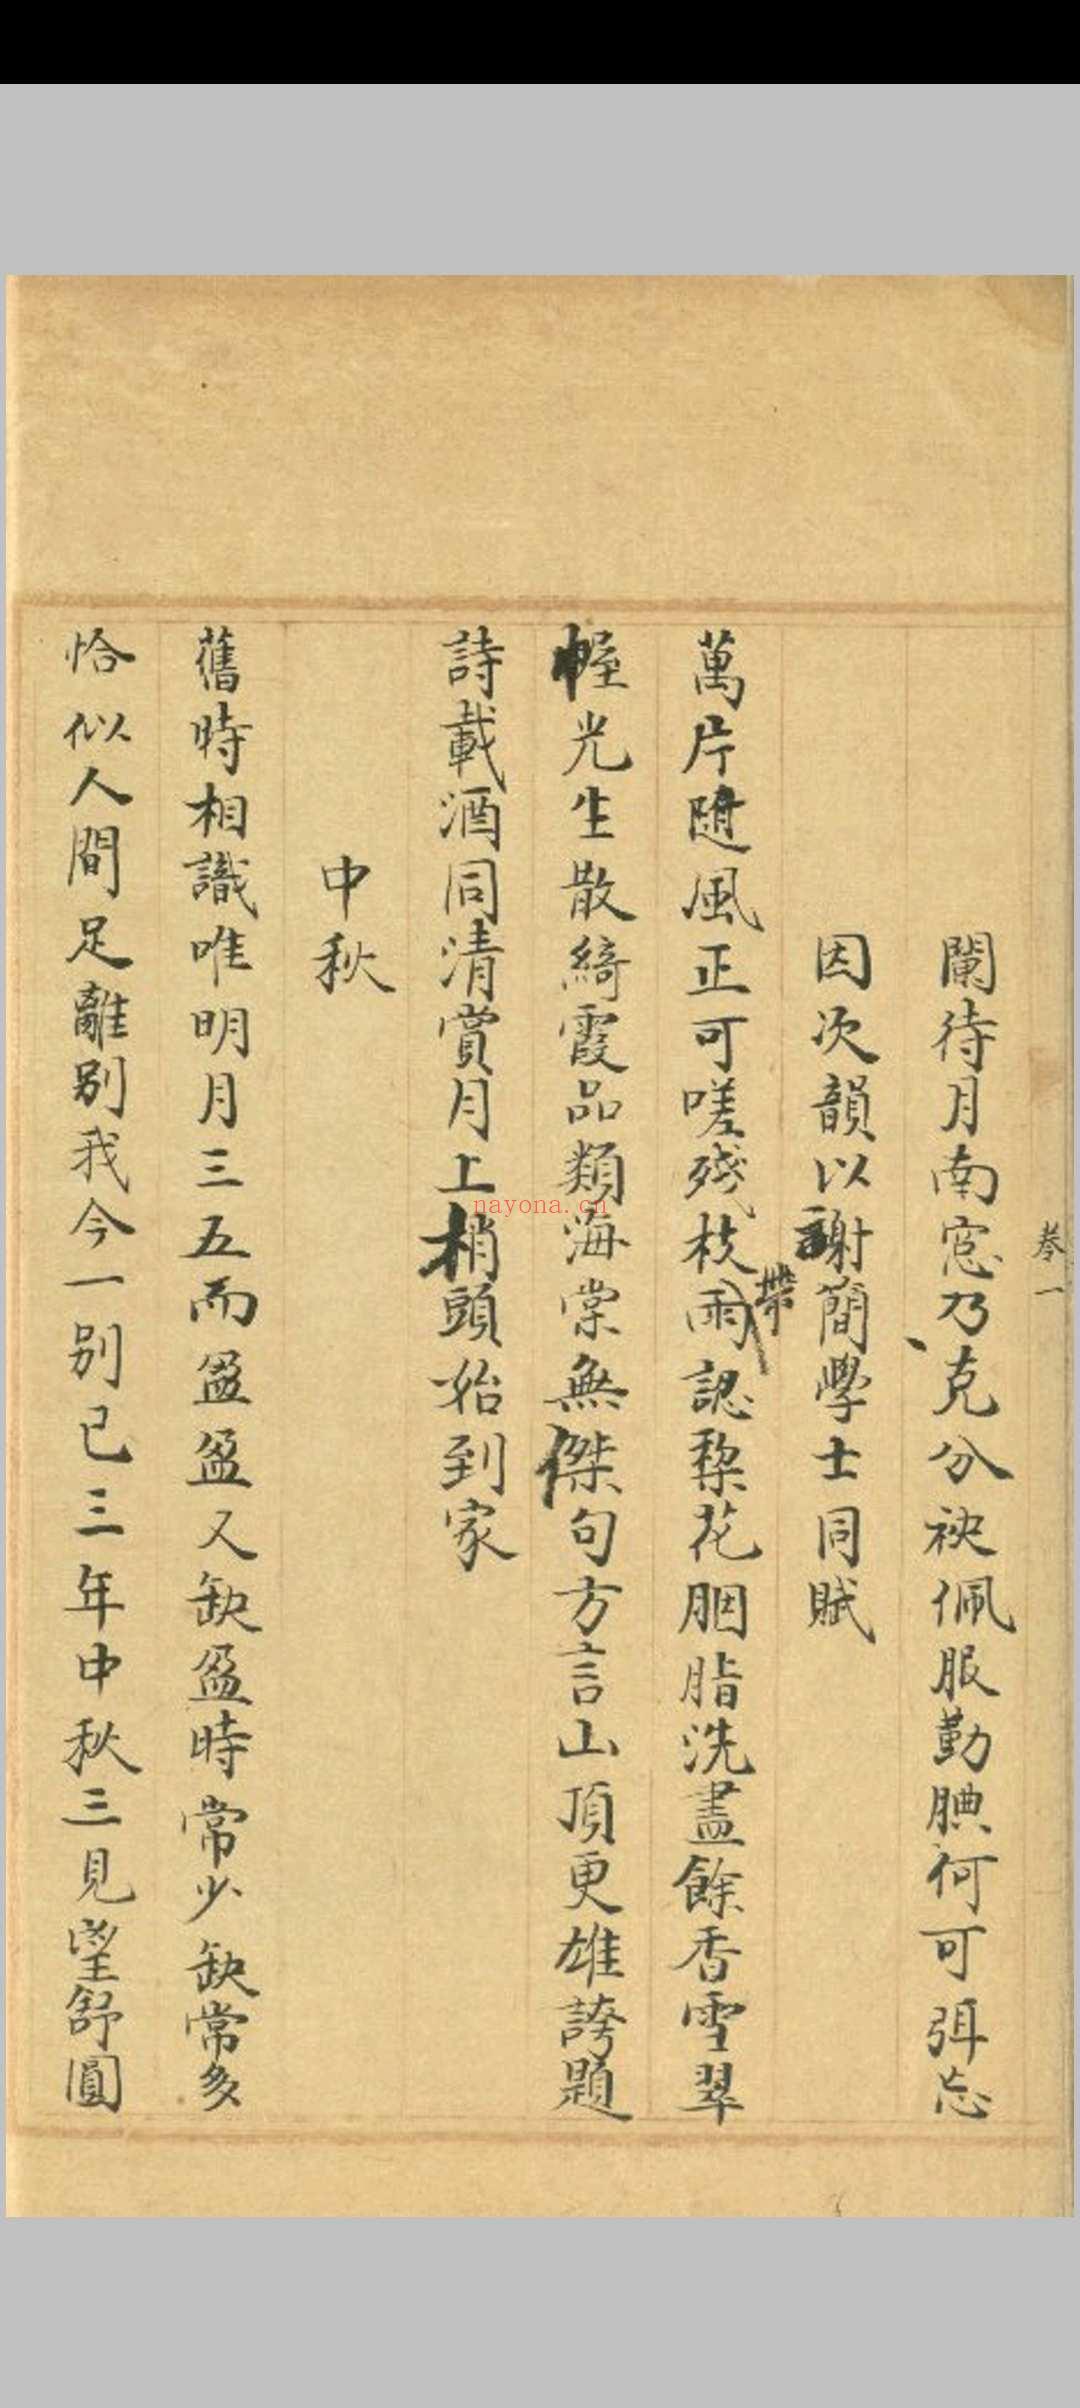 卷一
闌待月南窓乃克分袂佩服勤腆何可弭忘
因次韻以謝簡學士同賦
萬片隨風正可嗟殘枝帶雨認棃花胭脂洗盡餘香雪翠
幄光生散綺霞品類海棠無傑句方言山頂更雄誇題
詩載酒同清賞月上梢頭始到家
中秋
舊時相識唯明月三五而盈盈又缺盈時常少缺常多
恰似人間足離别我今一别已三年中秋三見望舒圓
nayona.cn